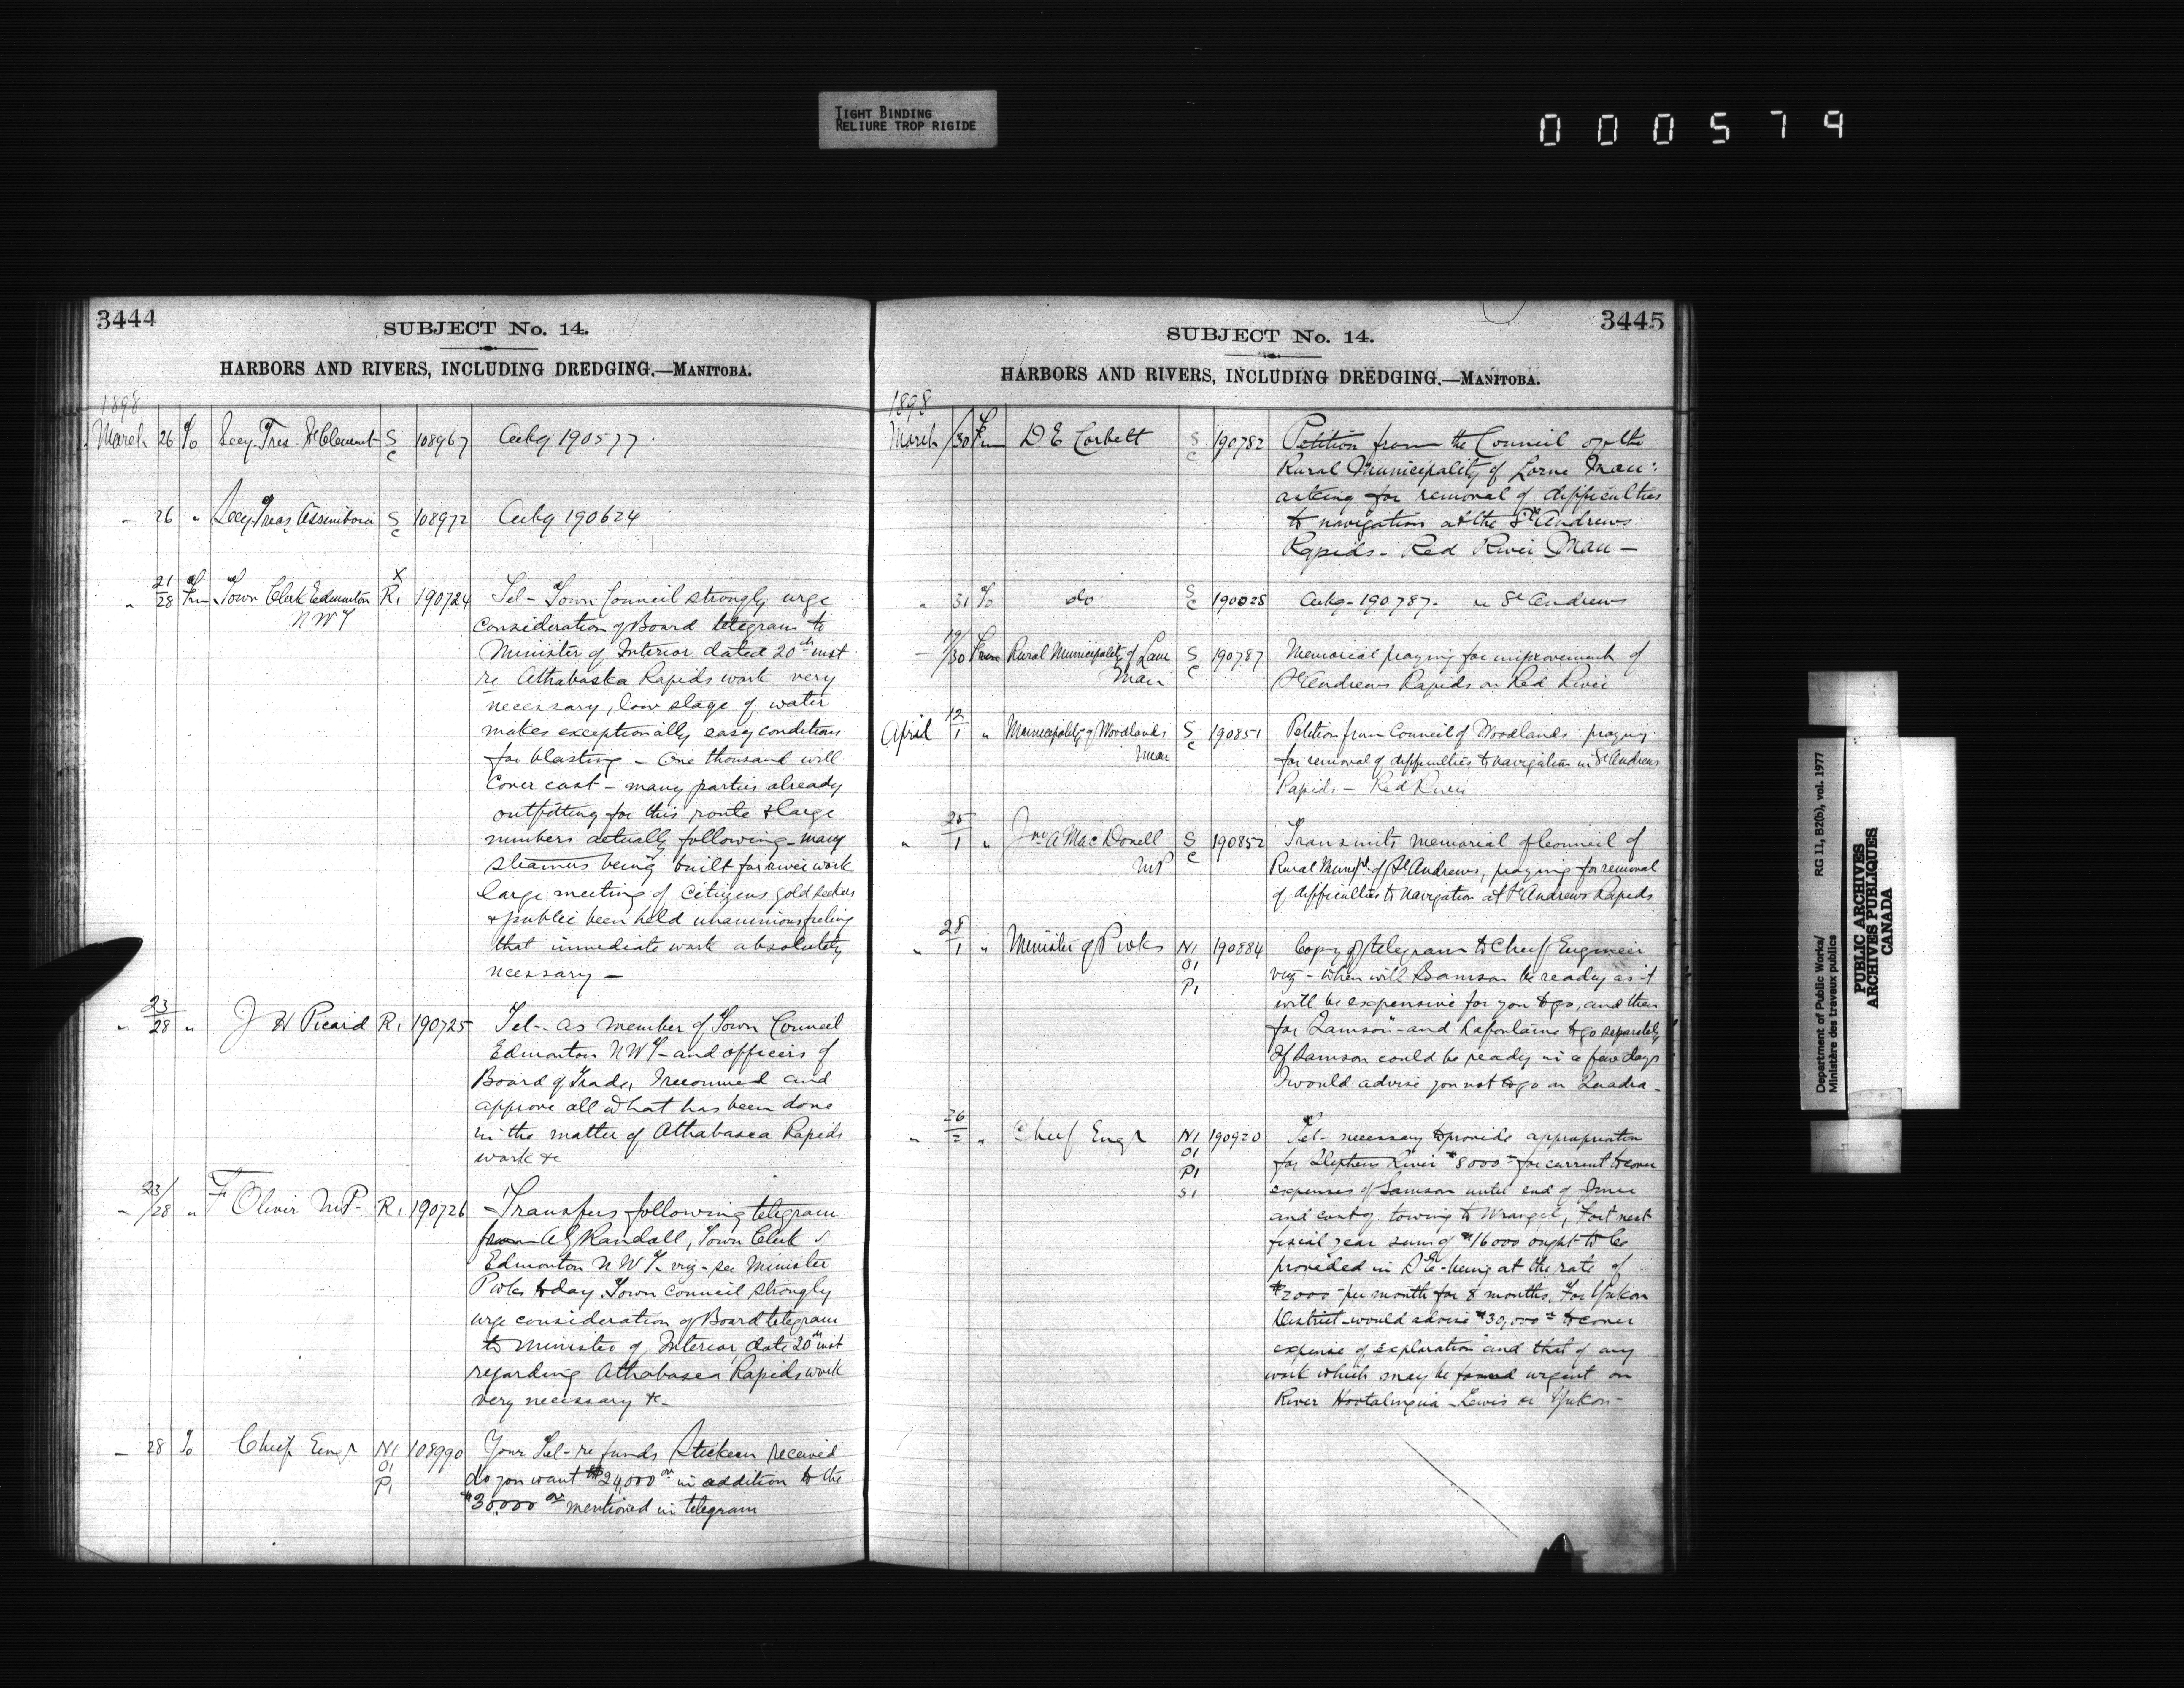 TIGHT BINDING
RELIURE TROP RIGIDE
000579
3444
SUBJECT No. 14.
HARBORS AND RIVERS, INCLUDING DREDGING.—MANITOBA.
1898
March 26 To Secy. Tres. St Clement S C 108967 Ackg 190577
" 26 " Secy Treas Assiniboia S C 108972 Ackg 190624
" 21/28 Fm Town Clerk Edmonton R1 X 190724 Tel - Town Council strongly urge
N W T
consideration of Board telegram to
Minister of Interior dated 20th inst
re Athabaska Rapids work very
necessary, low stage of water
makes exceptionally easy conditions
for blasting - One thousand will
cover cost - many parties already
outfitting for this route & large
numbers actually following - many
steamers being built for river work
large meeting of citizens gold seekers
& public been held unanimous feeling
that immediate work absolutely
necessary -
" 23/28 " J H Picard R1 190725 Tel - as member of Town Council
Edmonton N W T - and officers of
Board of Trade, I recommend and
approve all what has been done
in the matter of Athabasca Rapids
work &c
" 23/28 " F Oliver M.P. R1 190726 Transfers following telegram
from A G Randall, Town Clerk
Edmonton N W T viz - see Minister
P Wks today. Town council strongly
urge consideration of Board telegram
to Minister of Interior date 20th inst
regarding Athabasca Rapids work
very necessary &c -
- 28 To Chief Engr N1 O1 P1 108990 Your Tel - re funds Stickeen received
do you want $24,000 00 in addition to the
$30,000 00 mentioned in telegram
3445
SUBJECT No. 14.
HARBORS AND RIVERS, INCLUDING DREDGING.—MANITOBA.
1898
March /30 Fm D E Corbett S C 190782 Petition from the Council of the
Rural Municipality of Lorne Man:
asking for removal of difficulties
to navigation at the St Andrews
Rapids - Red River Man -
" 31 To do S C Ackg - 190787 - re St Andrews
- 19/30 From Rural Municipality of S C 190787 Memorial praying for improvement of
Man St Andrews Rapids on Red River
April 12/1 " Municipality of Woodlands S C 190851 Petition from Council of Woodlands praying
Man for removal of difficulties to navigation in St Andrews
Rapids - Red River
" 25/1 " Jno A MacDonell S C 190852 Transmits memorial of Council of
MP Rural Munplt of St Andrews, praying for removal
of difficulties to navigation at St Andrews Rapids
" 28/1 " Minister of P Wks N1 O1 P1 190884 Copy of telegram to Chief Engineer
viz - when will Samson be ready as it
will be expensive for you to go, and then
for Samson - and Lafontaine to go separately
If Samson could be ready in a few days
I would advise you not to go on Quadra -
" 26/2 " Chief Engr N1 O1 P1 S1 190920 Tel - necessary to provide appropriation
for River $8000 - for current to cover
expenses of Samson until end of June
and cost of towing to Wrangel, For next
fiscal year sum of $16000 ought to be
provided in - being at the rate of
$2000 - per month for 8 months. For Yukon
District would advise $30,000 - to cover
expense of exploration and that of any
work which may be found urgent on
River Hootalinqua Lewis or Yukon -
Department of Public Works/
Ministère des travaux publics
RG 11, B2(b), vol. 1977
PUBLIC ARCHIVES
ARCHIVES PUBLIQUES
CANADA